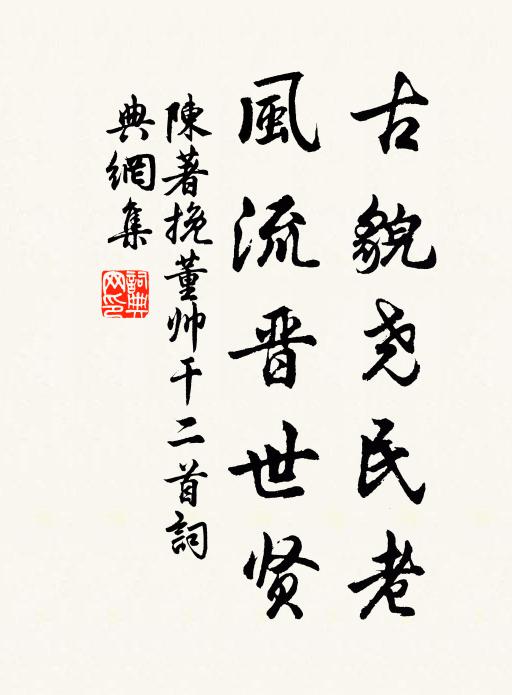 古貌尧民老
風流晋世贤
陳著挽董帅干二首詞
典網集
詞典网印